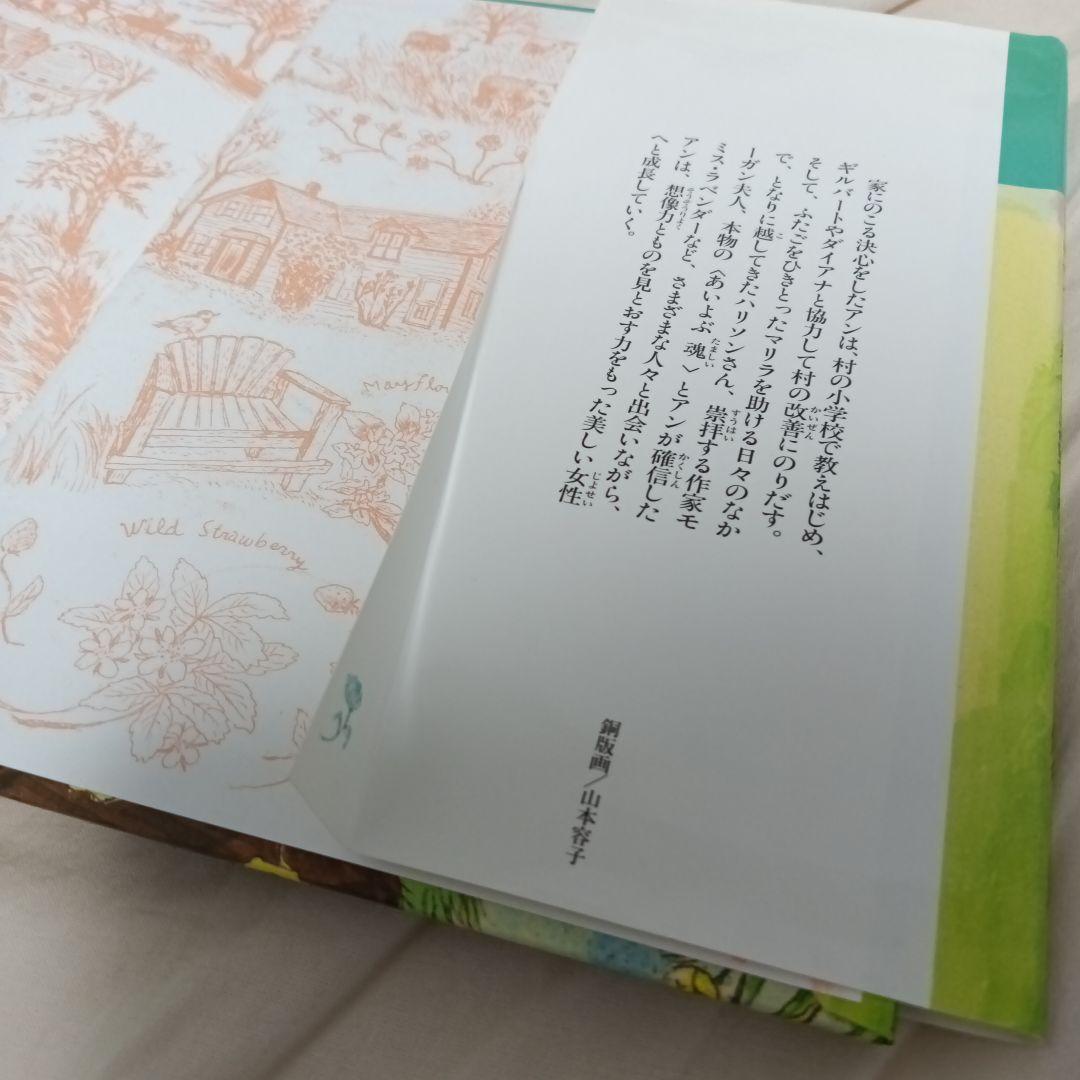 家にのこる決心をしたアンは、村の小学校で教えはじめ、
ギルバートやダイアナと協力して村の改善にのりだす。
そして、ふたごをひきとったマリラを助ける日々のなか
で、となりに越してきたハリソンさん、崇拝する作家モ
ーガン夫人、本物の〈あいよぶ魂〉とアンが確信した
ミス・ラベンダーなど、さまざまな人々と出会いながら、
アンは、想像力とものを見とおす力をもった美しい女性
へと成長していく。
銅版画/山本容子
Mayflo
Wild Strawberry